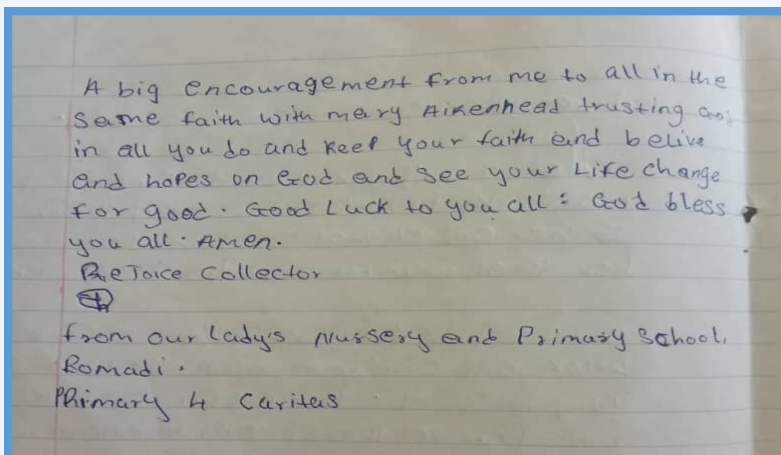 A big encouragement from me to all in the
same faith with mary Aikenhead trusting God
in all you do and keep your faith and belive
and hopes on God and see your Life change
for good. Good Luck to you all: God bless
you all. Amen.
ReJoice Collector
from our Lady's Nursery and Primary School,
Bomadi.
PRimary 4 Caritas